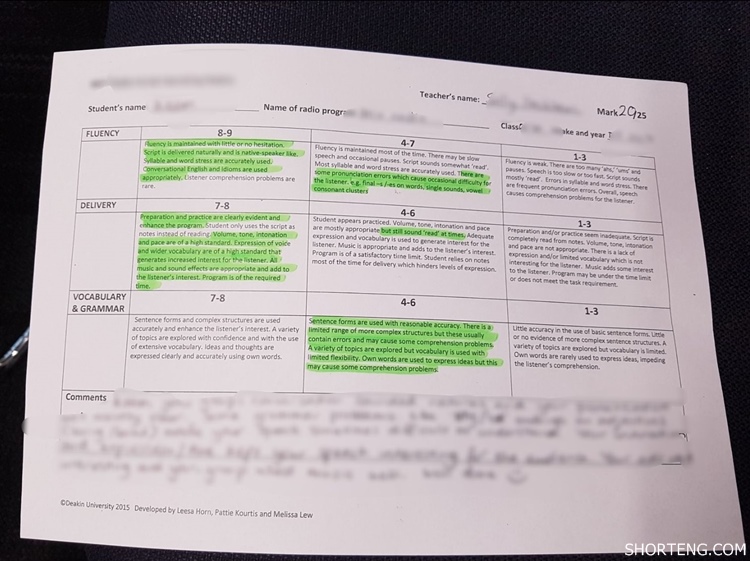 Teacher's name:
Student's name Name of radio progr Mark 20/25
Class
ke and year
FLUENCY 8-9 4-7 1-3
Fluency is maintained with little or no hesitation.
Script is delivered naturally and is native-speaker like.
Syllable and word stress are accurately used.
Conversational English and Idioms are used
appropriately. Listener comprehension problems are
rare.
Fluency is maintained most of the time. There may be slow
speech and occasional pauses. Script sounds somewhat 'read'.
Most syllable and word stress are accurately used. There are
some pronunciation errors which cause occasional difficulty for
the listener. e.g. final –s /-es on words, single sounds, vowel
consonant clusters
Fluency is weak. There are too many 'ahs,' 'ums' and
pauses. Speech is too slow or too fast. Script sounds
mostly 'read'. Errors in syllable and word stress. There
are frequent pronunciation errors. Overall, speech
causes comprehension problems for the listener.
DELIVERY 7-8 4-6 1-3
Preparation and practice are clearly evident and
enhance the program. Student only uses the script as
notes instead of reading. Volume, tone, intonation
and pace are of a high standard. Expression of voice
and wider vocabulary are of a high standard that
generates increased interest for the listener. All
music and sound effects are appropriate and add to
the listener's interest. Program is of the required
time.
Student appears practiced. Volume, tone, intonation and pace
are mostly appropriate but still sound 'read' at times. Adequate
expression and vocabulary is used to generate interest for the
listener. Music is appropriate and adds to the listener's interest.
Program is of a satisfactory time limit. Student relies on notes
most of the time for delivery which hinders levels of expression.
Preparation and/or practice seem inadequate. Script is
completely read from notes. Volume, tone, intonation
and pace are not appropriate. There is a lack of
expression and/or limited vocabulary which is not
interesting for the listener. Music adds some interest
to the listener. Program may be under the time limit
or does not meet the task requirement.
VOCABULARY 7-8 4-6 1-3
& GRAMMAR
Sentence forms and complex structures are used
accurately and enhance the listener's interest. A variety
of topics are explored with confidence and with the
use of extensive vocabulary. Ideas and thoughts are
expressed clearly and accurately using own words.
Sentence forms are used with reasonable accuracy. There is a
limited range of more complex structures but these usually
contain errors and may cause some comprehension problems.
A variety of topics are explored but vocabulary is used with
limited flexibility. Own words are used to express ideas but this
may cause some comprehension problems.
Little accuracy in the use of basic sentence forms. Little
or no evidence of more complex sentence structures. A
variety of topics are explored but vocabulary is limited.
Own words are rarely used to express ideas, impeding
the listener's comprehension.
Comments
©Deakin University 2015 Developed by Leesa Horn, Pattie Kourtis and Melissa Lew
SHORTENG.COM